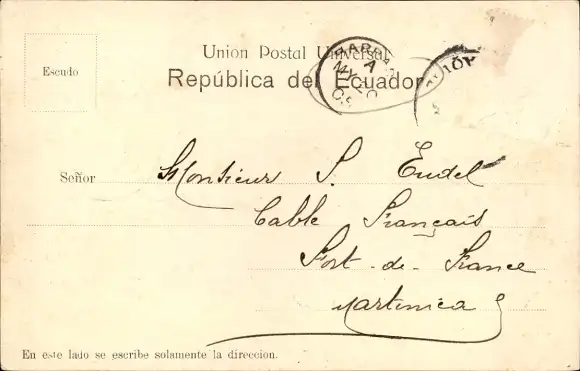 Union Postal Universal
República del Ecuador
Escudo
Señor
Monsieur S. Eudel
Cable Français
Fort-de-France
Martinica
En este lado se escribe solamente la direccion.